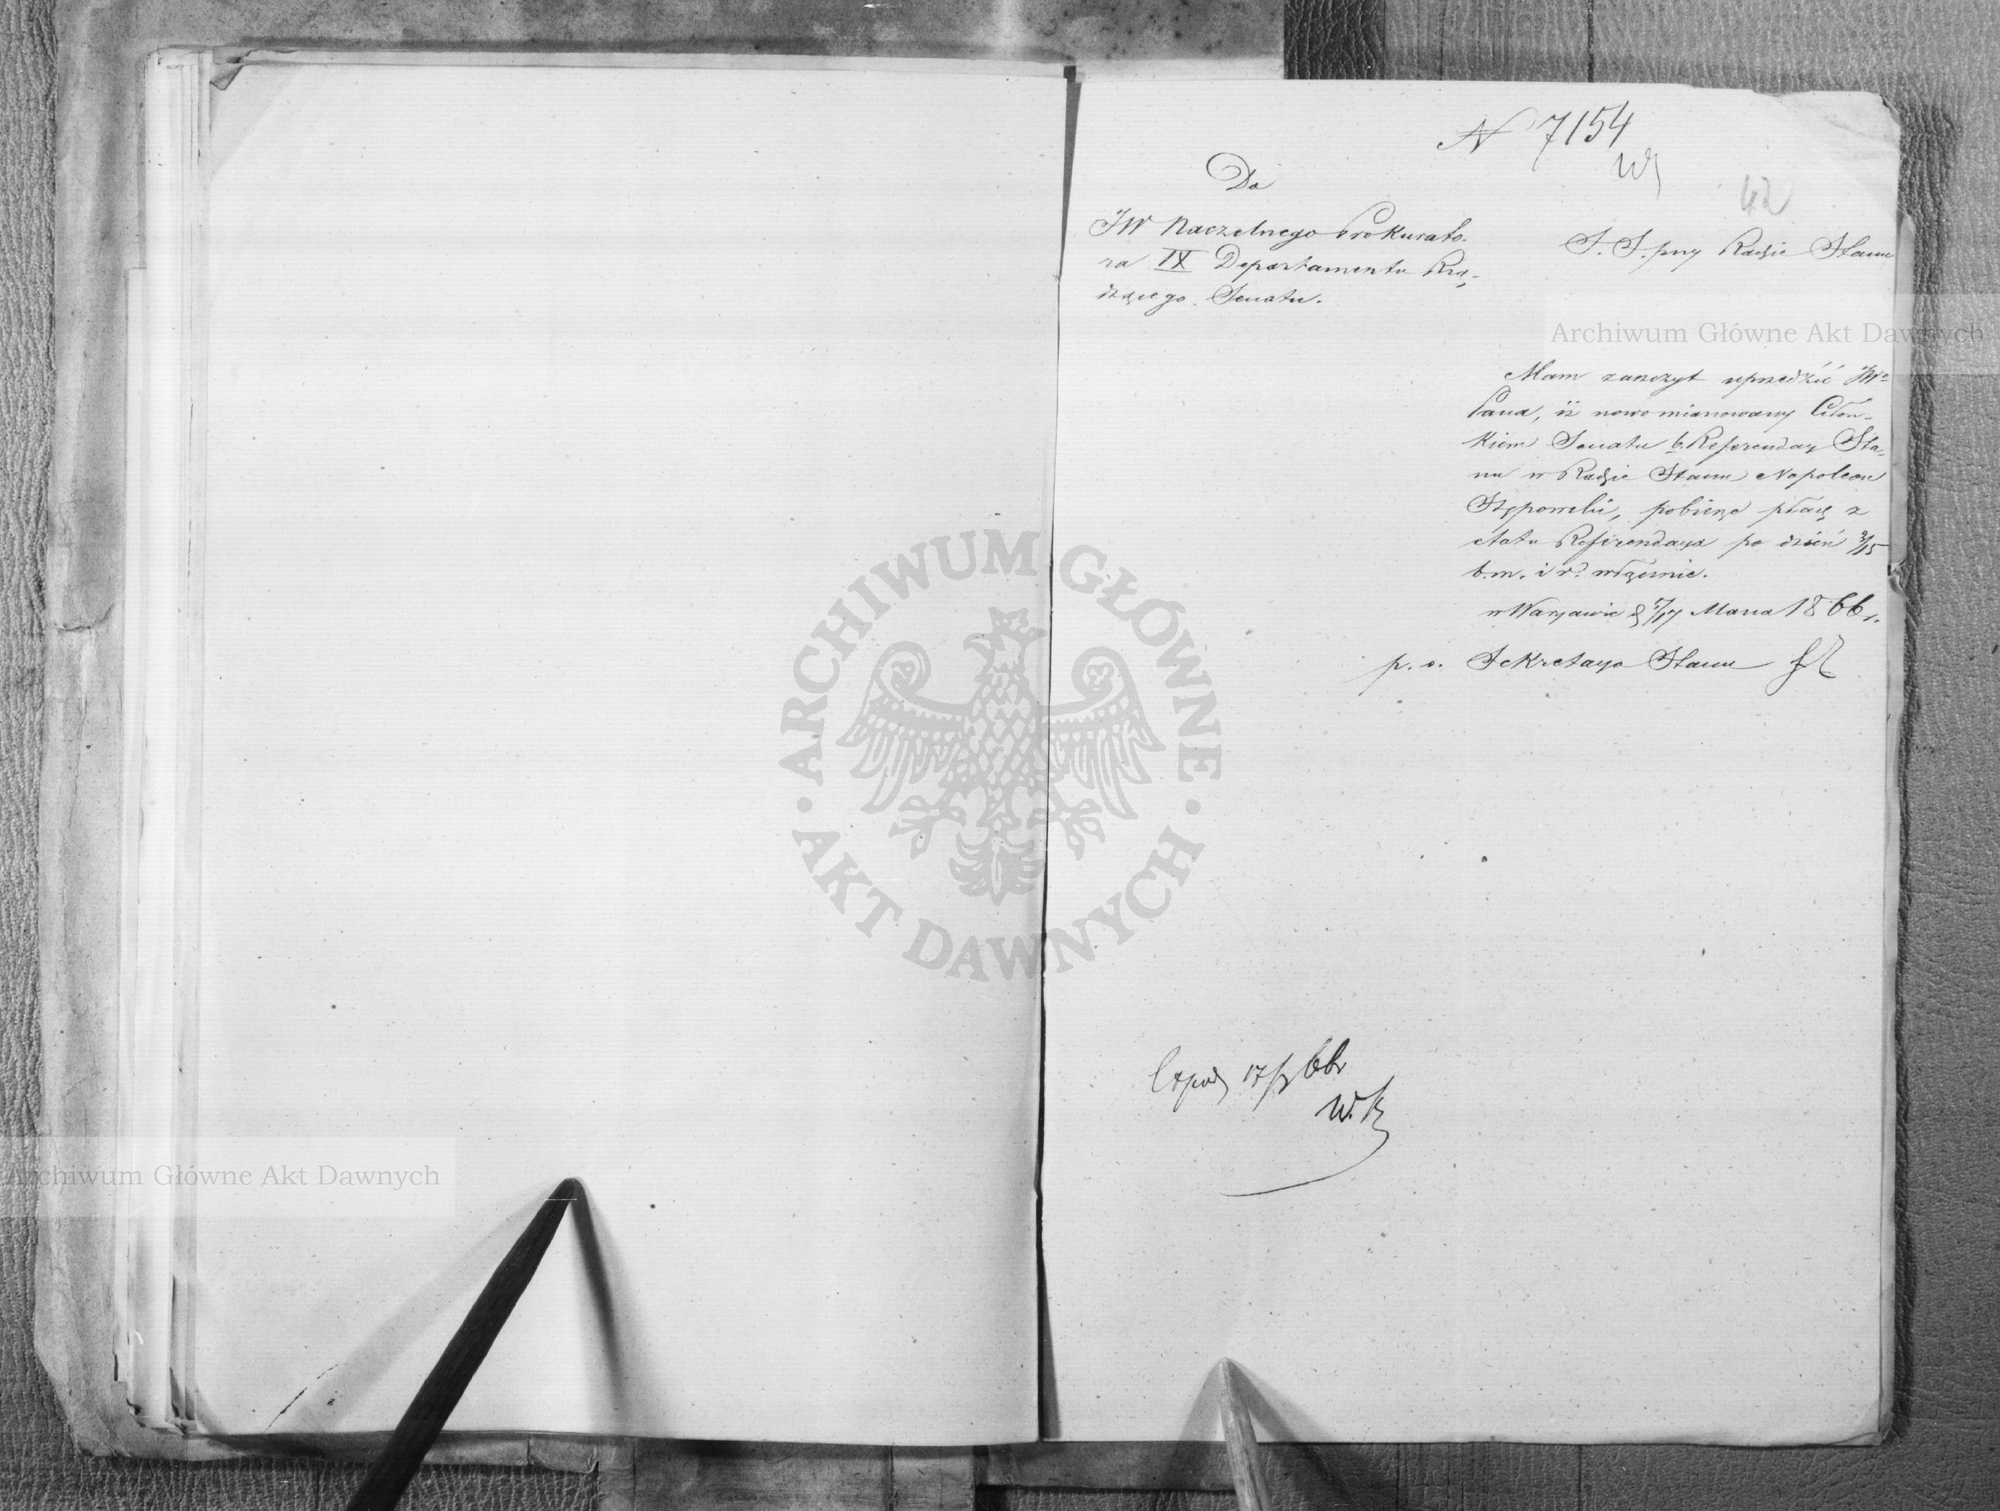 N 7154
42
Do
JW Naczelnego Prokurato-
ra IX Departamentu Rzą-
dzącego Senatu.
S. S. przy Radzie Stanu
Mam zaszczyt uprzedzić JWo
Pana, iż nowo mianowany Człon-
kiem Senatu b. Referendarz Sta-
nu w Radzie Stanu Napoleon
Stępowski, pobierze płacę z
etatu Referendarza po dzień 3/15
b.m. i r. włącznie.
w Warszawie d 5/17 Marca 1866 r.
p. o. Sekretarza Stanu
17/3 66r
W. K
ARCHIWUM GŁÓWNE AKT DAWNYCH
Archiwum Główne Akt Dawnych
Archiwum Główne Akt Dawnych